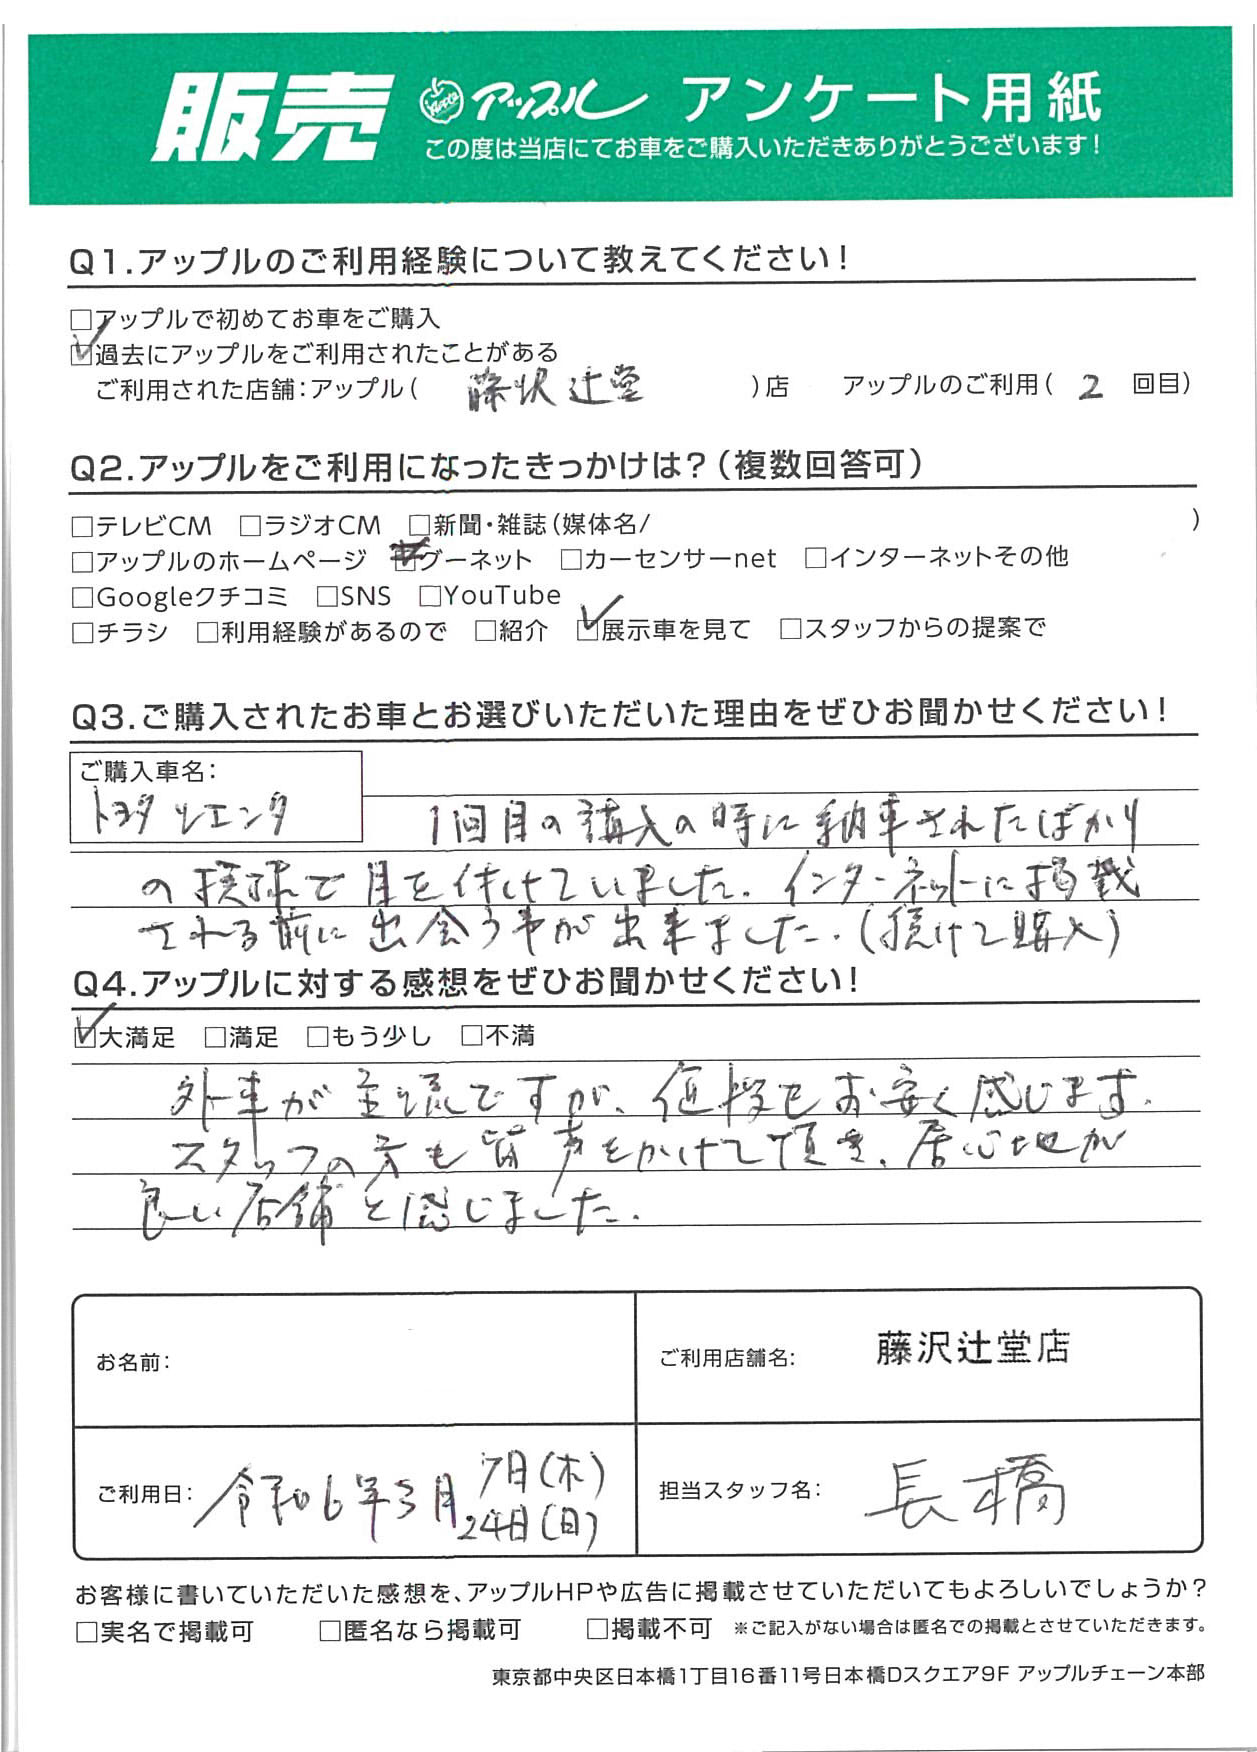 販売 アップル アンケート用紙
この度は当店にてお車をご購入いただきありがとうございます！
Q1.アップルのご利用経験について教えてください！
□アップルで初めてお車をご購入
☑過去にアップルをご利用されたことがある
ご利用された店舗：アップル（ 藤沢辻堂 ）店 アップルのご利用（ 2 回目）
Q2.アップルをご利用になったきっかけは？（複数回答可）
□テレビCM □ラジオCM □新聞・雑誌（媒体名/ ）
□アップルのホームページ □グーネット □カーセンサーnet □インターネットその他
□Googleクチコミ □SNS □YouTube
□チラシ □利用経験があるので □紹介 ☑展示車を見て □スタッフからの提案で
Q3.ご購入されたお車とお選びいただいた理由をぜひお聞かせください！
ご購入車名：
トヨタ シエンタ
1回目の購入の時に納車されたばかり
の で目を付けていました。インターネットに掲載
される前に出会う事が出来ました。(続けて購入)
Q4.アップルに対する感想をぜひお聞かせください！
☑大満足 □満足 □もう少し □不満
外車が主流ですが、値段もお安く感じます。
スタッフの方も皆声をかけて頂き、居心地が
良い店舗と感じました。
お名前：
ご利用店舗名： 藤沢辻堂店
ご利用日： 令和6年3月 7日(木)
24日(日)
担当スタッフ名： 長橋
お客様に書いていただいた感想を、アップルHPや広告に掲載させていただいてもよろしいでしょうか？
□実名で掲載可 □匿名なら掲載可 □掲載不可 ※ご記入がない場合は匿名での掲載とさせていただきます。
東京都中央区日本橋1丁目16番11号日本橋Dスクエア9F アップルチェーン本部